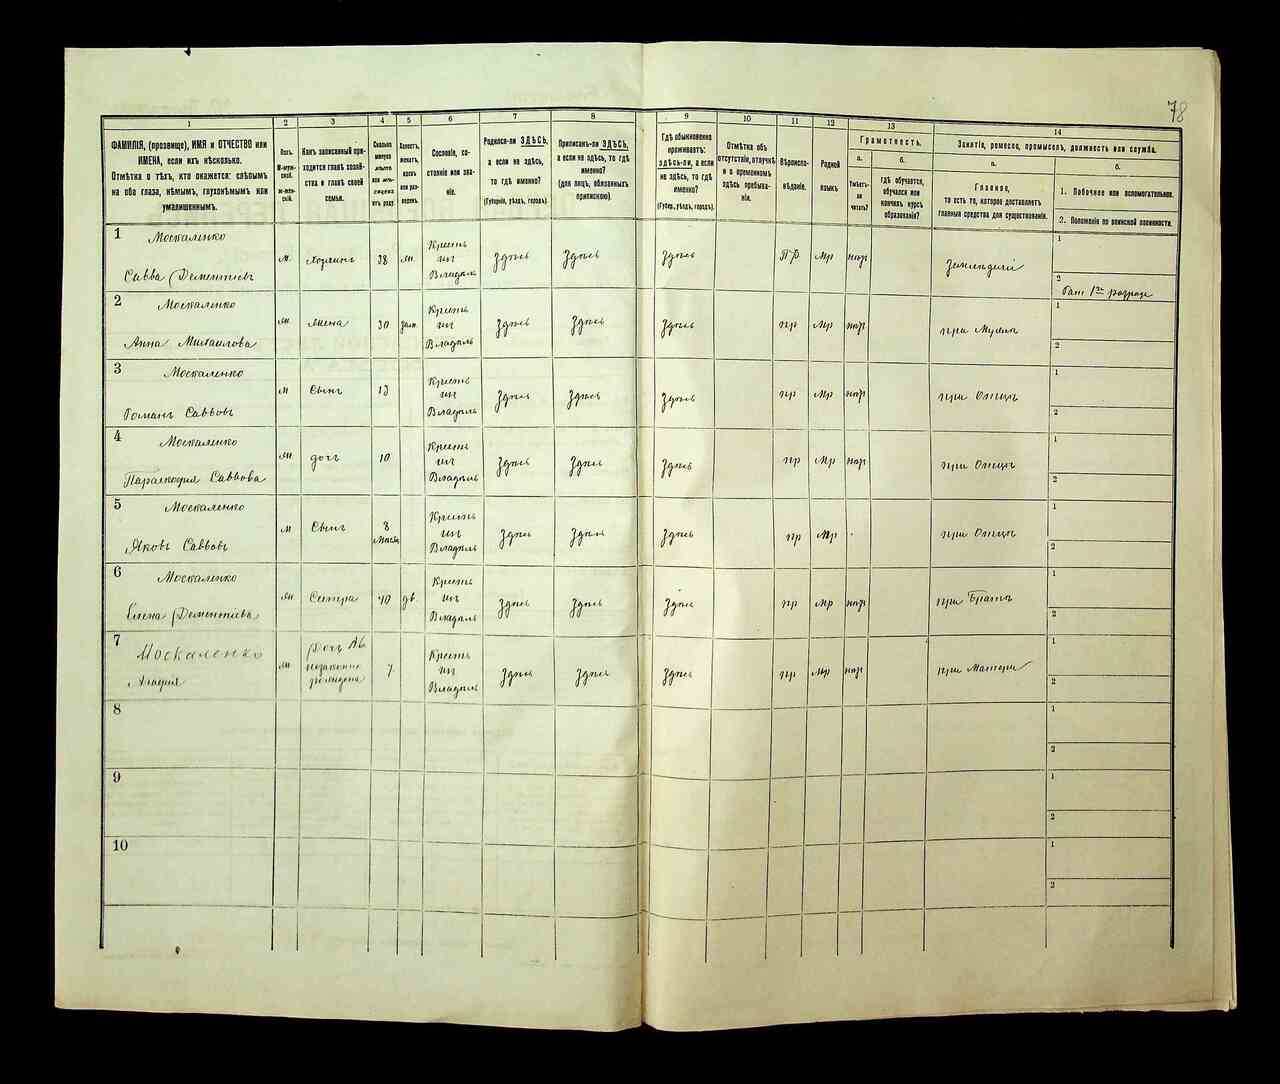 78
1
2
3
4
5
6
7
8
9
10
11
12
13
14
ФАМИЛІЯ, (прозвище), ИМЯ и ОТЧЕСТВО или
ИМЕНА, если ихъ нѣсколько.
Отмѣтка о тѣхъ, кто окажется: слѣпымъ
на оба глаза, нѣмымъ, глухонѣмымъ или
умалишеннымъ.
Полъ.
М-муж-
ской.
Ж-жен-
скій.
Какъ записанный при-
ходится главѣ хозяй-
ства и главѣ своей
семьи.
Сколько
минуло
лѣтъ
или мѣ-
сяцевъ
отъ роду.
Холостъ,
женатъ,
вдовъ
или раз-
веденъ.
Сословіе, со-
стояніе или зва-
ніе.
Родился-ли ЗДѢСЬ,
а если не здѣсь,
то гдѣ именно?
(Губернія, уѣздъ, городъ).
Приписанъ-ли ЗДѢСЬ,
а если не здѣсь, то гдѣ
именно?
(для лицъ, обязанныхъ
припискою).
Гдѣ обыкновенно
проживаетъ:
здѣсь-ли, а если
не здѣсь, то гдѣ
именно?
(Губер., уѣздъ, городъ).
Отмѣтка объ
отсутствіи, отлучкѣ
и о временномъ
здѣсь пребыва-
ніи.
Вѣроиспо-
вѣданіе.
Родной
языкъ
Грамотность.
а.
Умѣетъ-
ли
читать?
б.
гдѣ обучается,
обучался или
кончилъ курсъ
образованія?
Занятіе, ремесло, промыселъ, должность или служба.
а.
Главное,
то есть то, которое доставляетъ
главныя средства для существованія.
б.
1. Побочное или вспомогательное.
2. Положеніе по воинской повинности.
1 Москаленко
Савва Дементіевъ
м. Хозяинъ 38 жн. Крестьянинъ Владѣлъ Здѣсь Здѣсь Здѣсь Пр Мр нгр
1
2
2 Москаленко
Анна Михаилова
ж Жена 30 зам. Здѣсь Здѣсь Здѣсь пр Мр нгр при Мужѣ
1
2
3 Москаленко
Романъ Саввовъ
м Сынъ 13 Здѣсь Здѣсь Здѣсь пр Мр нгр при Отцѣ
1
2
4 Москаленко
Параскофия Саввова
ж дочь 10 Здѣсь Здѣсь Здѣсь пр Мр нгр при Отцѣ
1
2
5 Москаленко
Яковъ Саввовъ
м Сынъ 8 Здѣсь Здѣсь Здѣсь пр Мр при Отцѣ
1
2
6 Москаленко
Елена Дементіева
ж Сестра 40 дв. Здѣсь Здѣсь Здѣсь пр Мр нгр при Братѣ
1
2
7 Москаленко
ж Дочь 7 Здѣсь Здѣсь Здѣсь пр Мр нгр при Матери
1
2
8
1
2
9
1
2
10
1
2